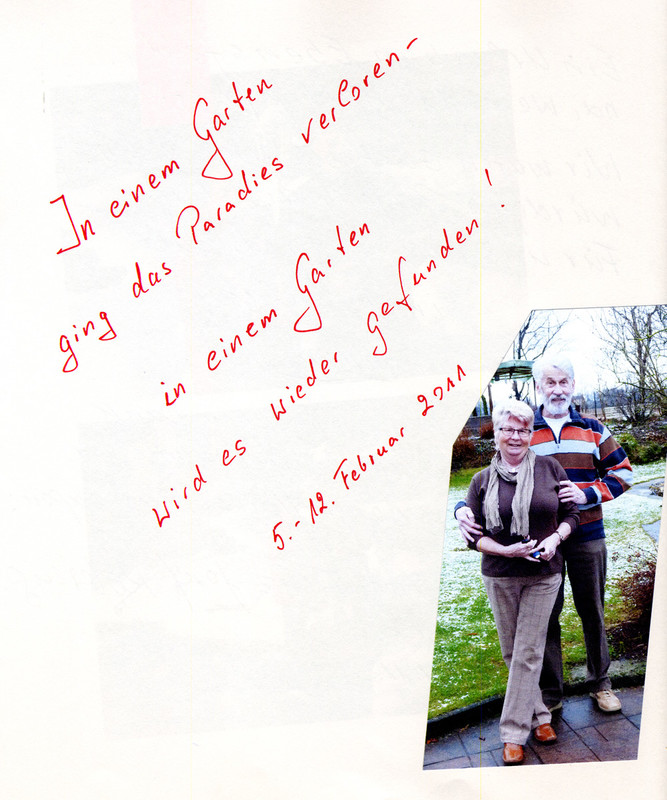 In einem Garten
ging das Paradies verloren-
in einem Garten
wird es wieder gefunden!
5.-12. Februar 2011